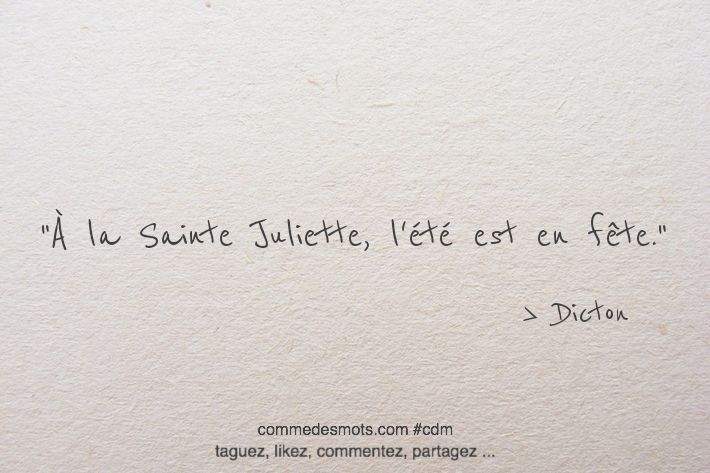 "À la Sainte Juliette, l'été est en fête."
> Dicton
commedesmots.com #cdm
taguez, likez, commentez, partagez ...